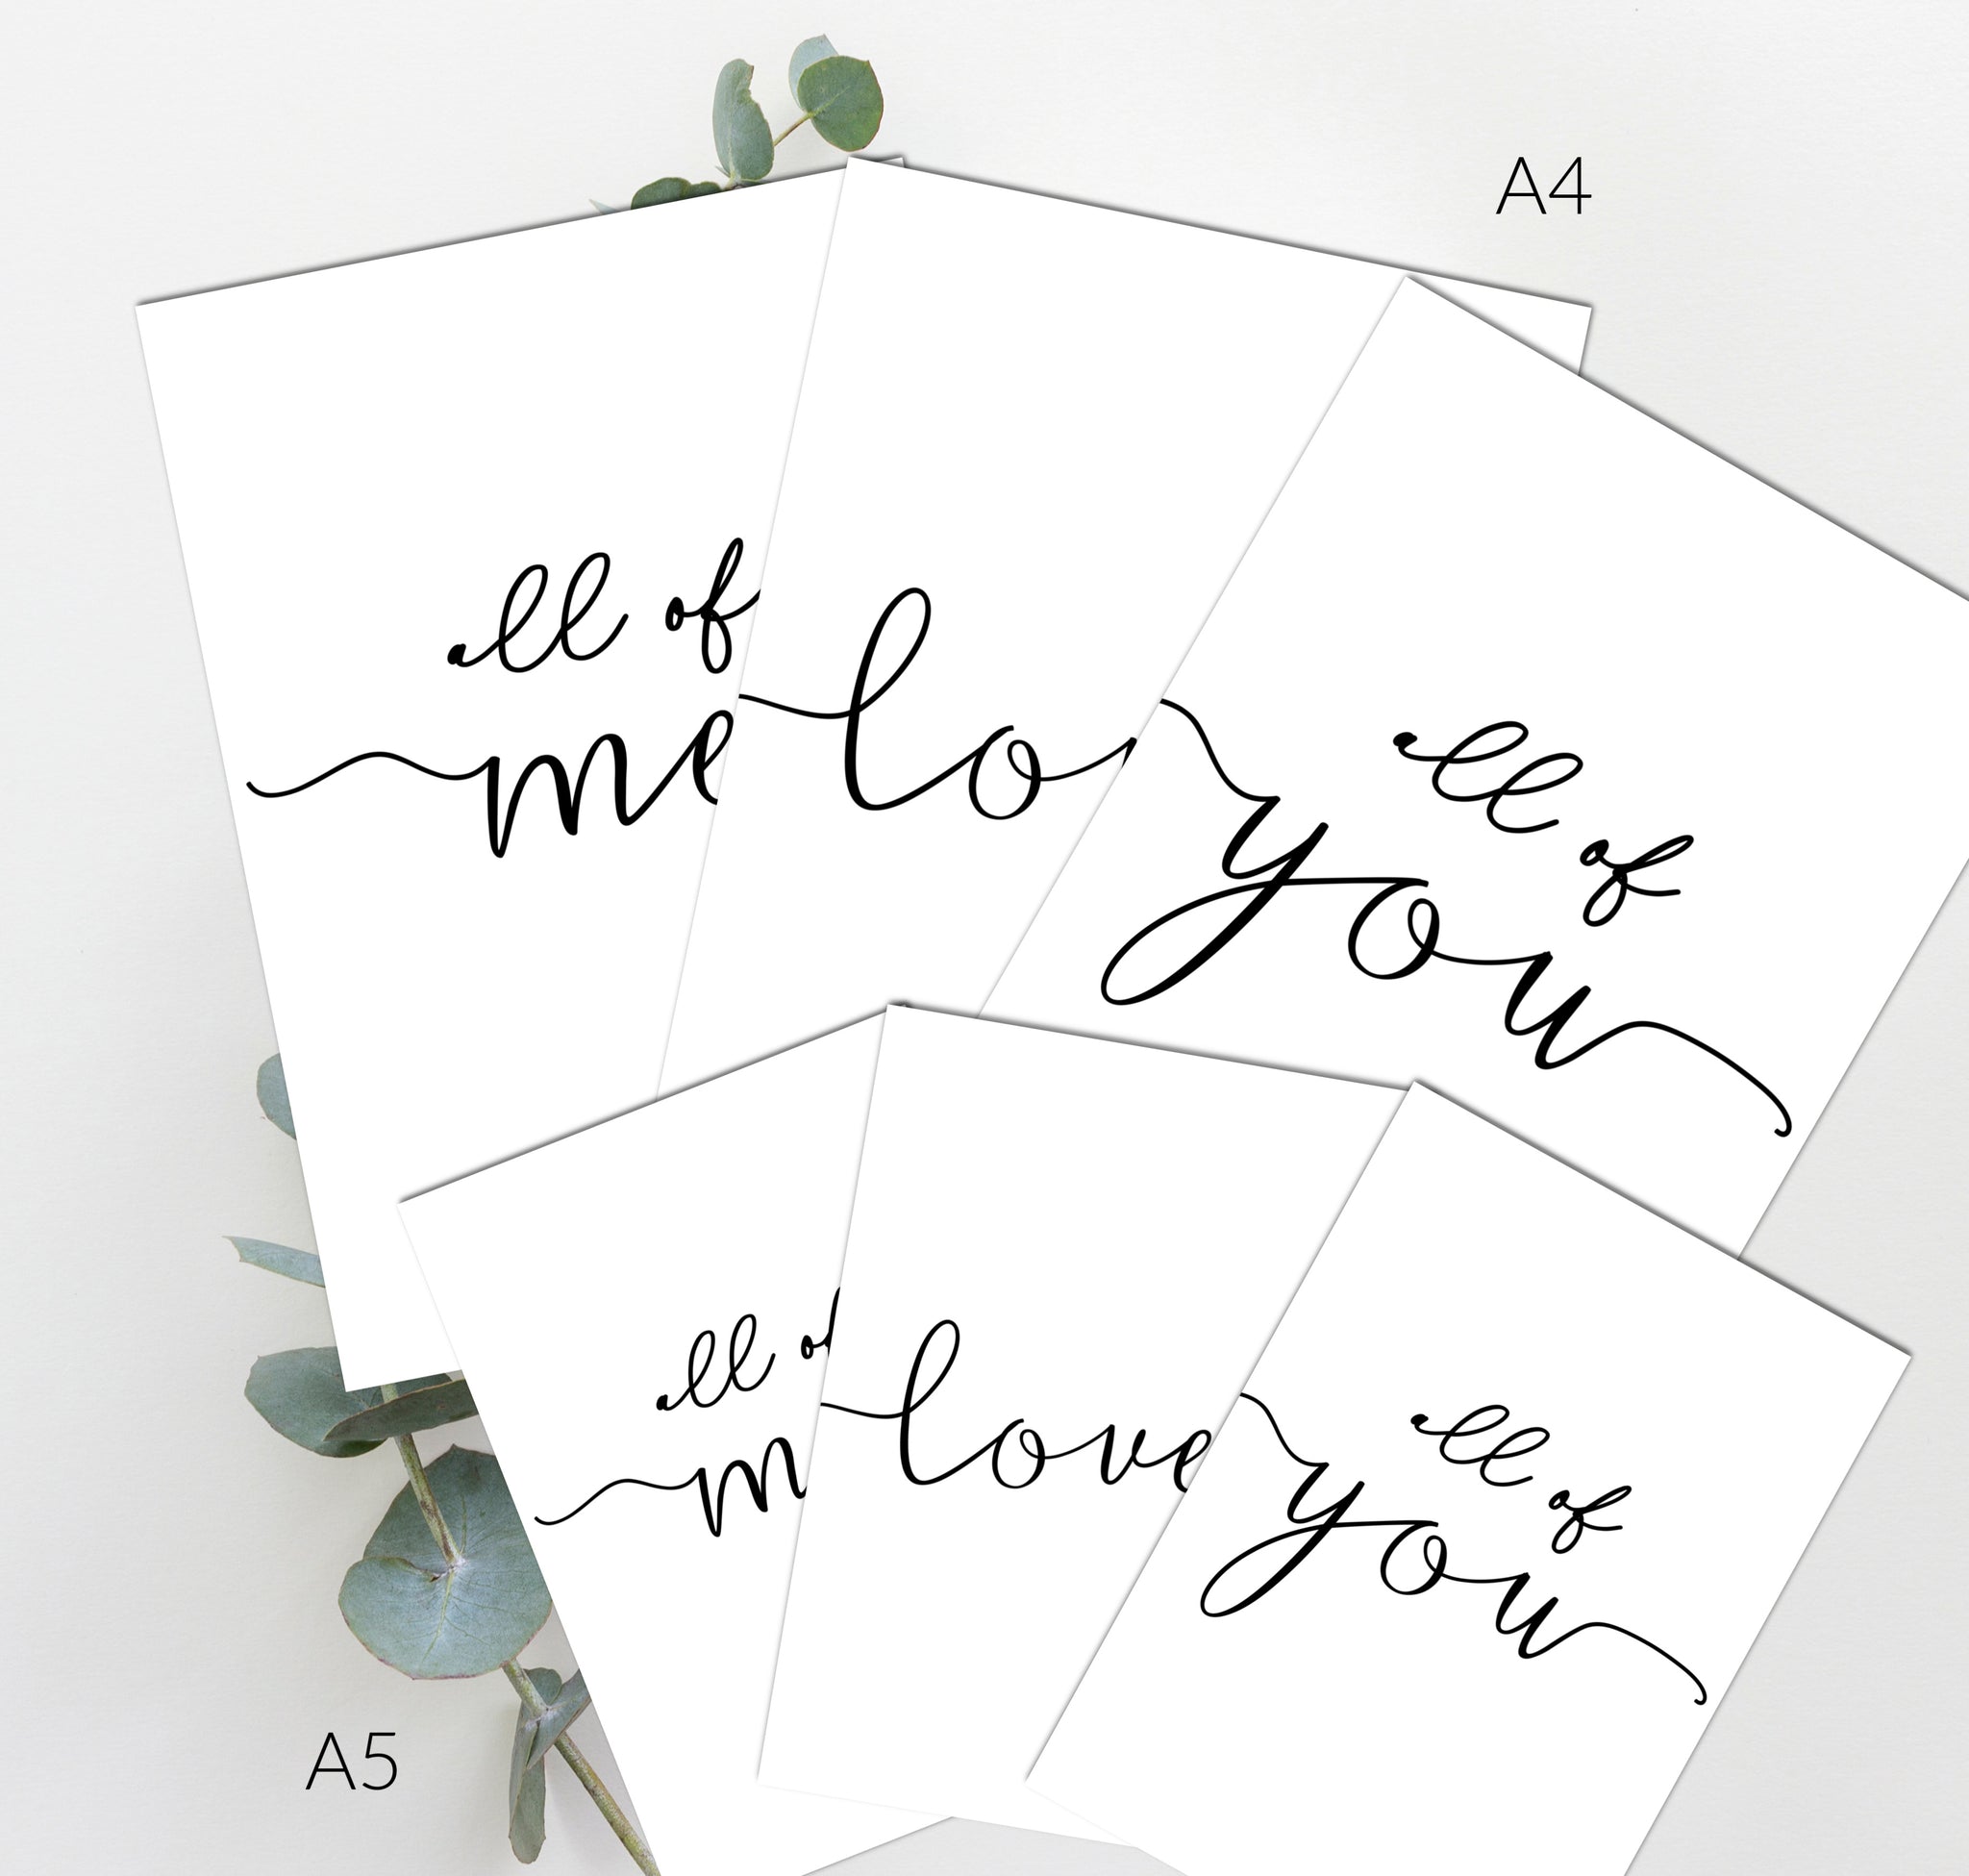 A4
all of
me
lo
all of
you
all of
m
love
all of
you
A5